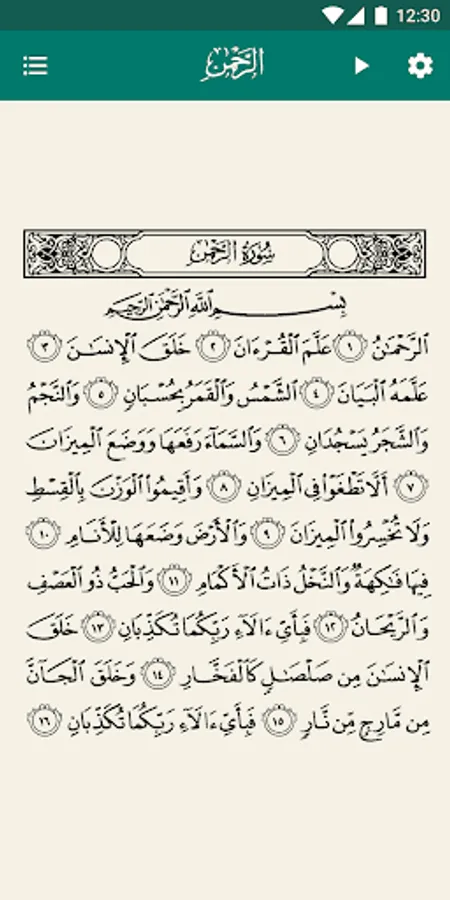 12:30
الرحمن
سُورَةُ الرَّحْمَٰن
بِسْمِ اللَّهِ الرَّحْمَٰنِ الرَّحِيمِ
ٱلرَّحْمَـٰنُ ١ عَلَّمَ ٱلْقُرْءَانَ ٢ خَلَقَ ٱلْإِنسَـٰنَ ٣
عَلَّمَهُ ٱلْبَيَانَ ٤ ٱلشَّمْسُ وَٱلْقَمَرُ بِحُسْبَانٍ ٥ وَٱلنَّجْمُ
وَٱلشَّجَرُ يَسْجُدَانِ ٦ وَٱلسَّمَآءَ رَفَعَهَا وَوَضَعَ ٱلْمِيزَانَ
٧ أَلَّا تَطْغَوْا۟ فِى ٱلْمِيزَانِ ٨ وَأَقِيمُوا۟ ٱلْوَزْنَ بِٱلْقِسْطِ
وَلَا تُخْسِرُوا۟ ٱلْمِيزَانَ ٩ وَٱلْأَرْضَ وَضَعَهَا لِلْأَنَامِ ١٠
فِيهَا فَـٰكِهَةٌ وَٱلنَّخْلُ ذَاتُ ٱلْأَكْمَامِ ١١ وَٱلْحَبُّ ذُو ٱلْعَصْفِ
وَٱلرَّيْحَانُ ١٢ فَبِأَىِّ ءَالَآءِ رَبِّكُمَا تُكَذِّبَانِ ١٣ خَلَقَ
ٱلْإِنسَـٰنَ مِن صَلْصَـٰلٍ كَٱلْفَخَّارِ ١٤ وَخَلَقَ ٱلْجَآنَّ
مِن مَّارِجٍ مِّن نَّارٍ ١٥ فَبِأَىِّ ءَالَآءِ رَبِّكُمَا تُكَذِّبَانِ ١٦